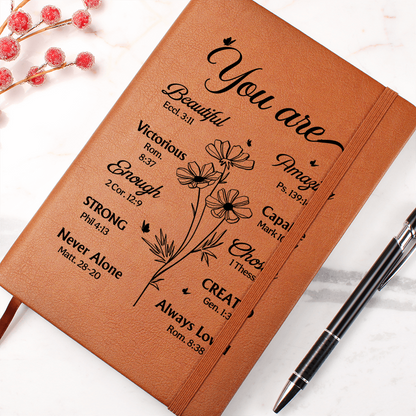 You are
Beautiful
Eccl. 3:11
Victorious
Rom.
8:37
Enough
2 Cor. 12:9
STRONG
Phil 4:13
Never Alone
Matt. 28-20
Ps. 139:
Mark
1 Thess
CREAT
Gen. 1:
Always Lov
Rom. 8:38